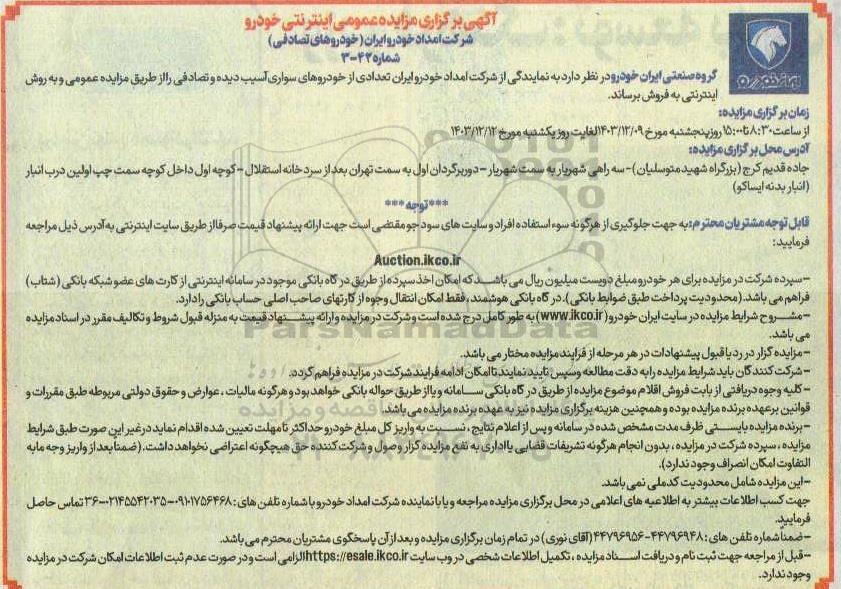 آگهی برگزاری مزایده عمومی اینترنتی خودرو
شرکت امداد خودرو ایران (خودروهای تصادفی)
شماره ۴۲-۳
ایران خودرو
گروه صنعتی ایران خودرو در نظر دارد به نمایندگی از شرکت امداد خودرو ایران تعدادی از خودروهای سواری آسیب دیده و تصادفی را از طریق مزایده عمومی و به روش
اینترنتی به فروش برساند.
زمان برگزاری مزایده:
از ساعت ۸:۳۰ تا ۱۵:۰۰ روز پنجشنبه مورخ ۱۴۰۳/۱۲/۰۹ لغایت روز یکشنبه مورخ ۱۴۰۳/۱۲/۱۲
آدرس محل برگزاری مزایده:
جاده قدیم کرج (بزرگراه شهید متوسلیان) - سه راهی شهریار به سمت شهریار - دوربرگردان اول به سمت تهران بعد از سردخانه استقلال - کوچه اول داخل کوچه سمت چپ اولین درب انبار
(انبار بدنه ایساکو)
***توجه***
قابل توجه مشتریان محترم: به جهت جلوگیری از هرگونه سوء استفاده افراد و سایت های سودجو مقتضی است جهت ارائه پیشنهاد قیمت صرفا از طریق سایت اینترنتی به آدرس ذیل مراجعه
فرمایید:
Auction.ikco.ir
- سپرده شرکت در مزایده برای هر خودرو مبلغ دویست میلیون ریال می باشد که امکان اخذ سپرده از طریق درگاه بانکی موجود در سامانه اینترنتی از کارت های عضو شبکه بانکی (شتاب)
فراهم می باشد. (محدودیت پرداخت طبق ضوابط بانکی). درگاه بانکی هوشمند، فقط امکان انتقال وجوه از کارتهای صاحب اصلی حساب بانکی را دارد.
- مشروح شرایط مزایده در سایت ایران خودرو (www.ikco.ir) به طور کامل درج شده است و شرکت در مزایده و ارائه پیشنهاد قیمت به منزله قبول شروط و تکالیف مقرر در اسناد مزایده
می باشد.
- مزایده گزار در رد یا قبول پیشنهادات در هر مرحله از فرایند مزایده مختار می باشد.
- شرکت کنندگان باید شرایط مزایده را به دقت مطالعه وسپس تایید نمایند تا امکان ادامه فرایند شرکت در مزایده فراهم گردد.
- کلیه وجوه دریافتی از بابت فروش اقلام موضوع مزایده از طریق درگاه بانکی سامانه و یا از طریق حواله بانکی خواهد بود و هرگونه مالیات ، عوارض و حقوق دولتی مربوطه طبق مقررات و
قوانین بر عهده برنده مزایده بوده و همچنین هزینه برگزاری مزایده نیز به عهده برنده مزایده می باشد.
- برنده مزایده بایستی ظرف مدت مشخص شده در سامانه و پس از اعلام نتایج ، نسبت به واریز کل مبلغ خودرو حداکثر تا مهلت تعیین شده اقدام نماید در غیر این صورت طبق شرایط
مزایده ، سپرده شرکت در مزایده ، بدون انجام هرگونه تشریفات قضایی یا اداری به نفع مزایده گزار وصول و شرکت کننده حق هیچگونه اعتراضی نخواهد داشت. (ضمنا بعد از واریز وجه مابه
التفاوت امکان انصراف وجود ندارد).
- این مزایده شامل محدودیت کد ملی نمی باشد.
جهت کسب اطلاعات بیشتر به اطلاعیه های اعلامی در محل برگزاری مزایده مراجعه و یا با نماینده شرکت امداد خودرو با شماره تلفن های : ۰۹۱۰۱۷۵۶۴۶۸-۰۲۱۴۵۵۴۲۰۳۵-۳۶ تماس حاصل
فرمایید.
- ضمنا شماره تلفن های : ۴۴۷۹۶۹۴۸-۴۴۷۹۶۹۵۶ (آقای نوری) در تمام زمان برگزاری مزایده و بعد از آن پاسخگوی مشتریان محترم می باشد.
- قبل از مراجعه جهت ثبت نام و دریافت اسناد مزایده ، تکمیل اطلاعات شخصی در وب سایت https://esale.ikco.ir الزامی است و در صورت عدم ثبت اطلاعات امکان شرکت در مزایده
وجود ندارد.
ParsNamadData